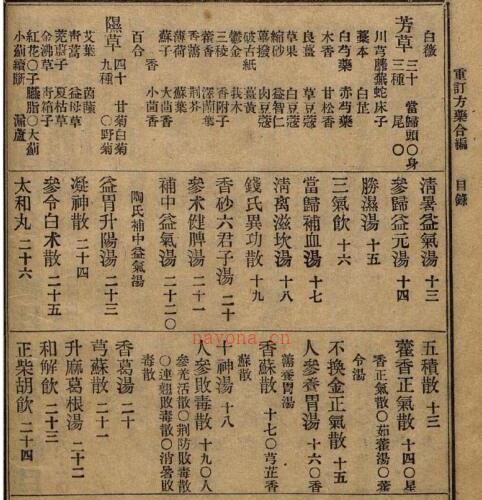 重訂方藥合編　目錄
白薇
芳草 三十三種 當歸頭○身尾○
川芎蘼蕪蛇床子
藁本 白芷
白芍藥 赤芍藥
木香 甘松香
良薑 草豆蔻
草果 白豆蔻
縮砂 益智仁
蓽撥 肉豆蔻
破古紙 薑黃
鬱金 莪朮
三稜 香附子
藿香 澤蘭葉
香薷 荊芥
薄荷 蘇葉
蘇子 大茴香 小茴香
百合
隰草 四十九種 甘菊白菊○野菊
艾葉 茵蔯
青蒿 益母草
茺蔚子 夏枯草
金沸草 青箱子
紅花○子臙脂○大薊
小薊續斷 漏盧
淸暑益氣湯 十三
參歸益元湯 十四
勝濕湯 十五
三氣飮 十六
當歸補血湯 十七
淸離滋坎湯 十八
錢氏異功散 十九
香砂六君子湯 二十
參朮健脾湯 二十一
補中益氣湯 二十二○
陶氏補中益氣湯
益胃升陽湯 二十三
凝神散 二十四
參令白朮散 二十五
太和丸 二十六
五積散 十三
藿香正氣散 十四○星香正氣散○茹藿湯○藿令湯
不換金正氣散 十五
人參養胃湯 十六○香薷養胃湯
香蘇散 十七○芎芷香蘇散
十神湯 十八
人參敗毒散 十九○人參羌活散○荊防敗毒散○連翹敗毒散○消暑敗毒散
香葛湯 二十
芎蘇散 二十一
升麻葛根湯 二十二
和解飮 二十三
正柴胡飮 二十四
nayona.cn